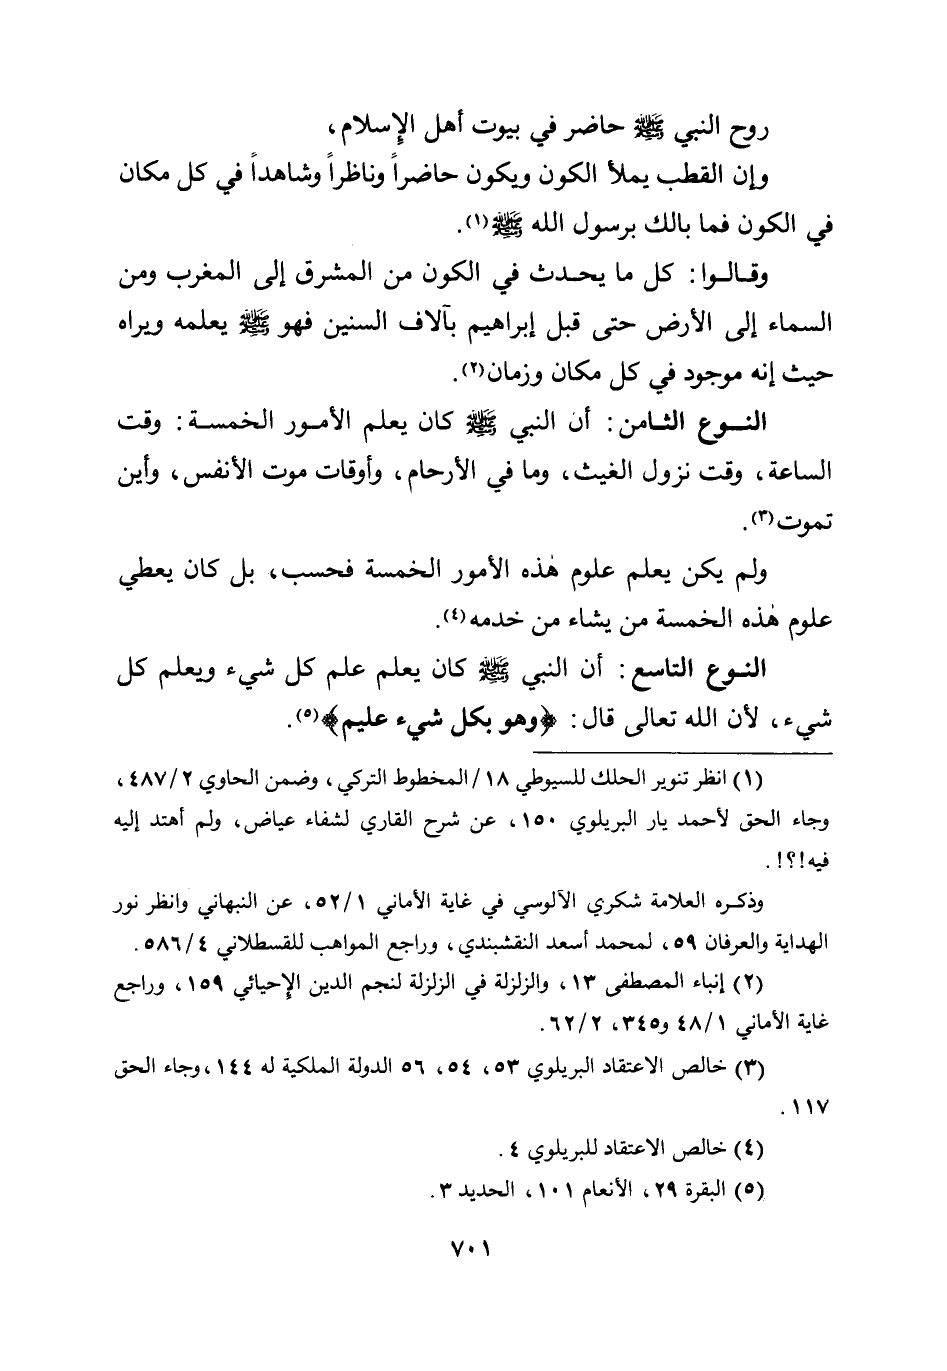 روح النبي ﷺ حاضر في بيوت أهل الإسلام،
وإن القطب يملأ الكون ويكون حاضراً وناظراً وشاهداً في كل مكان
في الكون فما بالك برسول الله ﷺ(١).
وقالوا: كل ما يحدث في الكون من المشرق إلى المغرب ومن
السماء إلى الأرض حتى قبل إبراهيم بآلاف السنين فهو ﷺ يعلمه ويراه
حيث إنه موجود في كل مكان وزمان(٢).
النوع الثامن: أن النبي ﷺ كان يعلم الأمور الخمسة: وقت
الساعة، وقت نزول الغيث، وما في الأرحام، وأوقات موت الأنفس، وأين
تموت(٣).
ولم يكن يعلم علوم هٰذه الأمور الخمسة فحسب، بل كان يعطي
علوم هٰذه الخمسة من يشاء من خدمه(٤).
النوع التاسع: أن النبي ﷺ كان يعلم علم كل شيء ويعلم كل
شيء، لأن الله تعالى قال: ﴿وهو بكل شيء عليم﴾(٥).
(١) انظر تنوير الحلك للسيوطي ١٨/المخطوط التركي، وضمن الحاوي ٤٨٧/٢،
وجاء الحق لأحمد يار البريلوي ١٥٠، عن شرح القاري لشفاء عياض، ولم أهتد إليه
فيه!؟!.
وذكره العلامة شكري الآلوسي في غاية الأماني ٥٢/١، عن النبهاني وانظر نور
الهداية والعرفان ٥٩، لمحمد أسعد النقشبندي، وراجع المواهب للقسطلاني ٥٨٦/٤.
(٢) إنباء المصطفى ١٣، والزلزلة في الزلزلة لنجم الدين الإحيائي ١٥٩، وراجع
غاية الأماني ٤٨/١ و٣٤٥، ٦٢/٢.
(٣) خالص الاعتقاد البريلوي ٥٣، ٥٤، ٥٦ الدولة الملكية له ١٤٤،وجاء الحق
١١٧.
(٤) خالص الاعتقاد للبريلوي ٤.
(٥) البقرة ٢٩، الأنعام ١٠١، الحديد ٣.
٧٠١